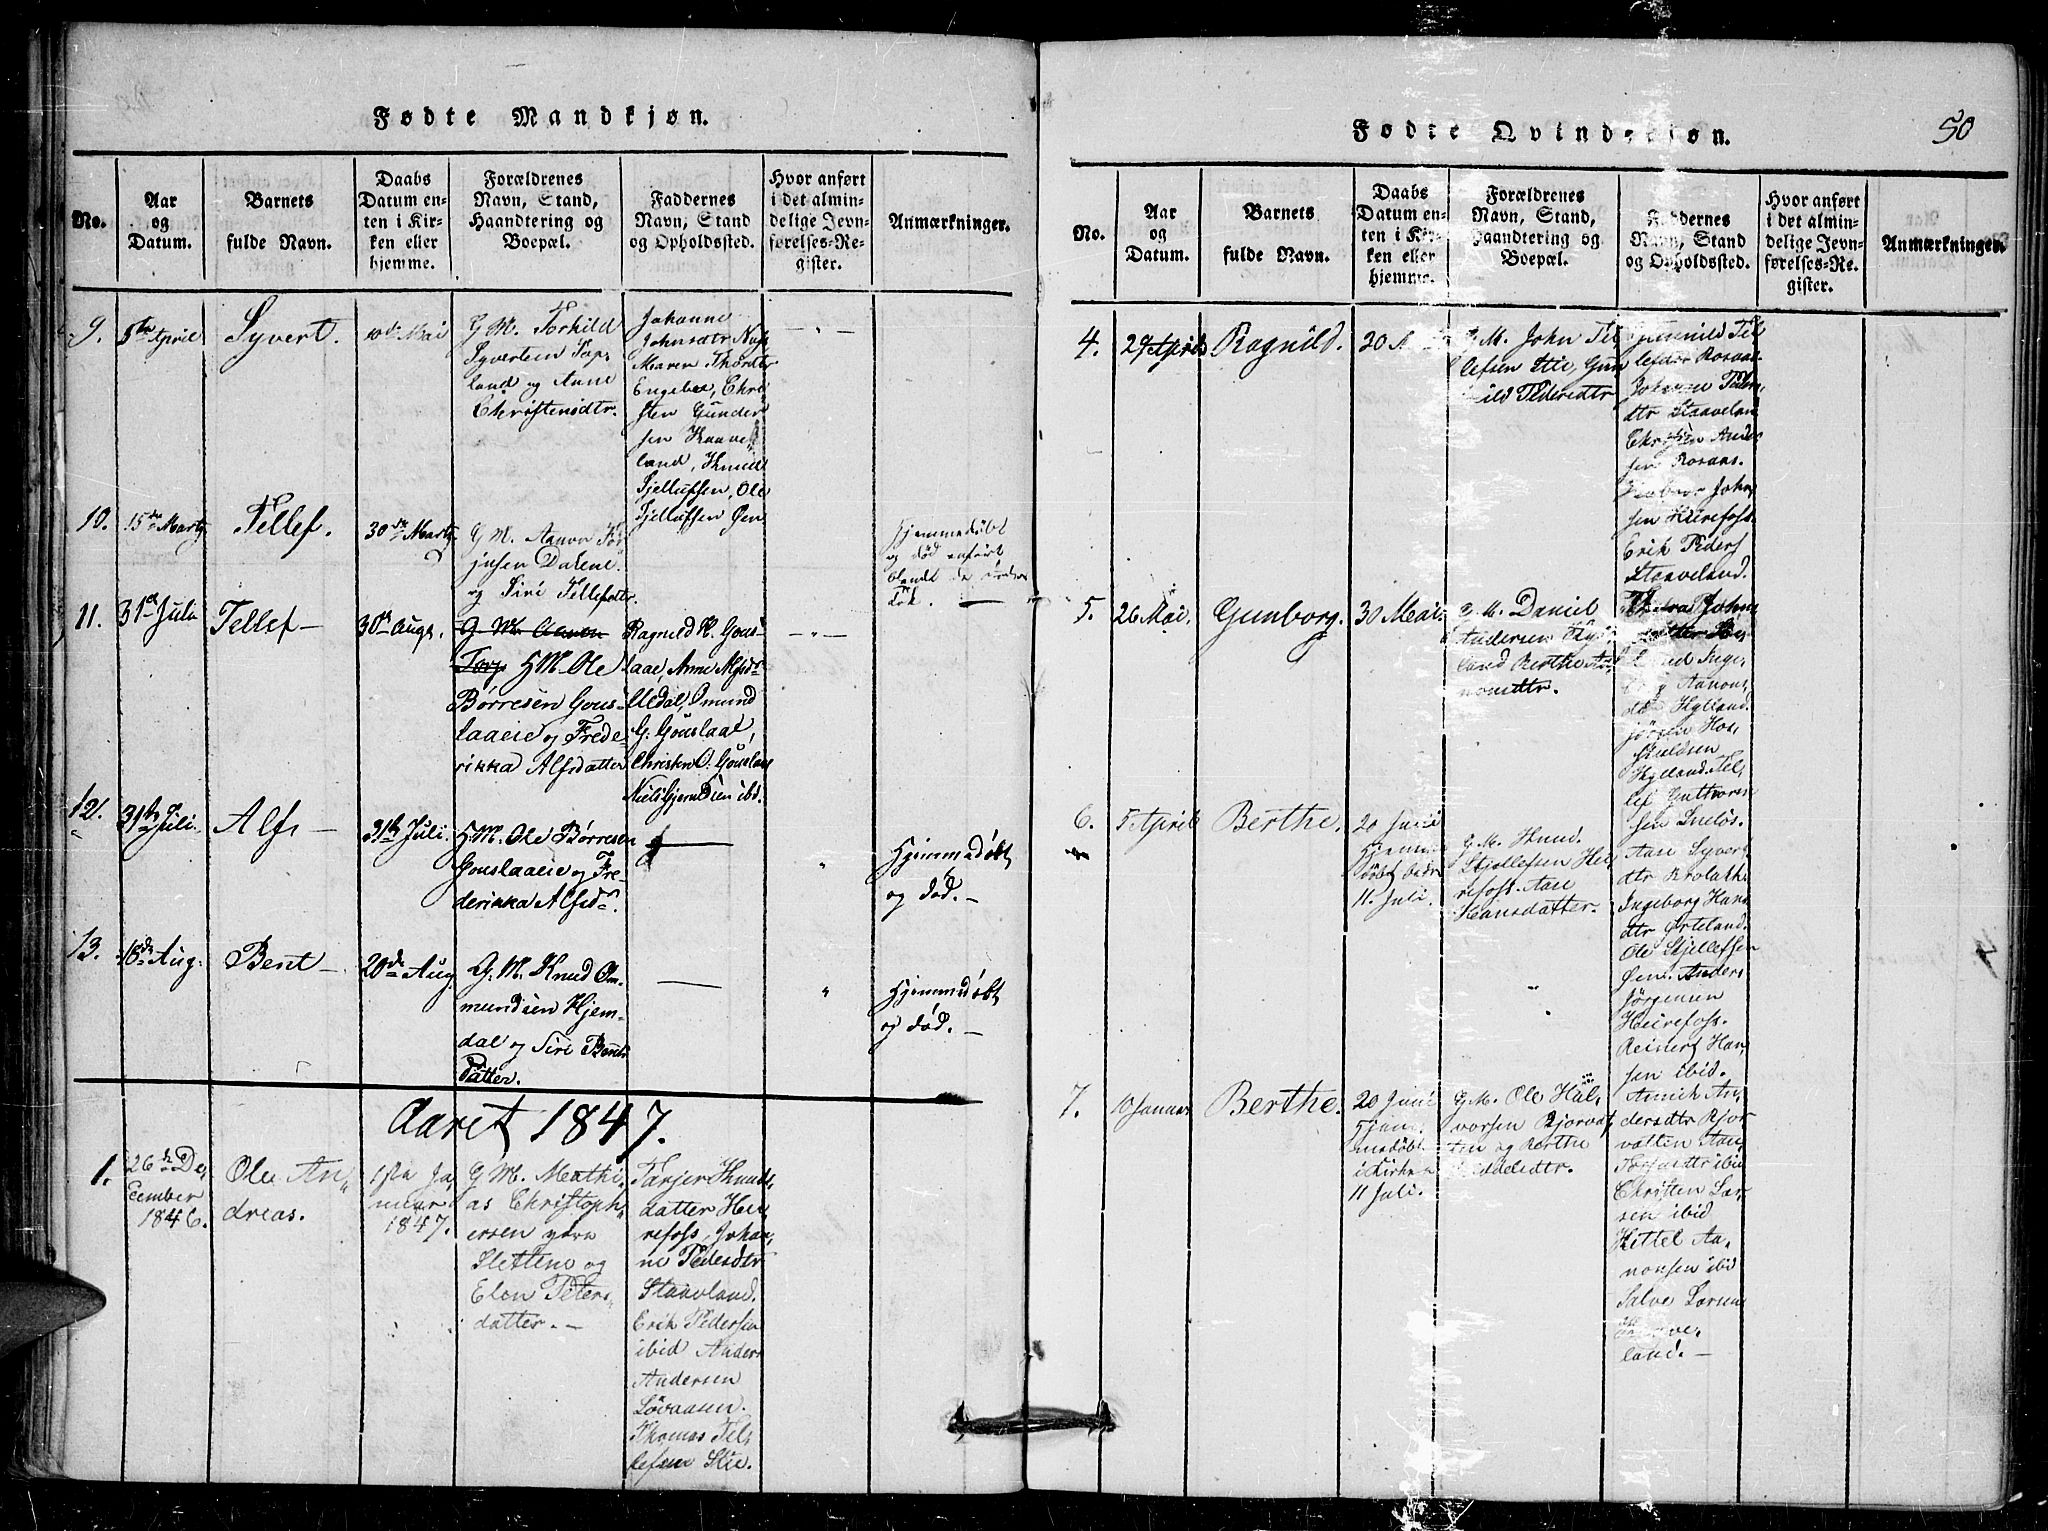 Fødte Mandkjøn.
No.
Aar
og
Datum.
Barnets
fulde Navn.
Daabs
Datum en-
ten i Kir-
ken eller
hjemme.
Forældrenes
Navn, Stand,
Haandtering og
Boepæl.
Faddernes
Navn, Stand
og Opholdssted.
Hvor anført
i det almin-
delige Jevn-
førelses-Re-
gister.
Anmærkninger.
9.
April
Syvert.
10de Mai
G. M. Torhild
Syvertsen
land og Anne
Christensdtr.
Johanne
Johnsdtr
Maren Thordtr
Engebre, Chri
sten Gunder
sen Haave
land, Knud
Sjellufsen, Ole
Sjellufsen Øen
10.
15de Marts
Tellef.
30de Marts
G. M. Aanon Tor
jusen Dalene
og Siri Tellefsdtr.
Hjemmedøbt
og død anført
blandt de
11.
31te Juli
Tellef —
30te Aug.
G. M. Aanon
Torj G M. Ole
Børresen Gous-
laaeie og Frede-
rikka Alfsdatter
Ragnild K. Gous-
laae, Anne Alfsd.
Uldal, Omund
G. Gouslaae,
Christen O. Gouslaae
Niels Gjeruldsen ibd.
12.
31te Juli.
Alf —
31te Juli.
G. M. Ole Børresen
Gouslaaeie og Fre-
derikka Alfsdr.
Hjemmedøbt
og død. —
13.
18de Aug.
Bent —
20de Aug.
G. M. Knud Om-
mundsen Hjem-
dal og Siri Bents
Datter.
Hjemmedøbt
og død. —
Aaret 1847.
1.
26de De-
cember
1846.
Ole An-
dreas.
1ste Ja-
nuar
1847.
G. M. Mathi-
as Christoph-
ersen
Sletten og
Elen Peters-
datter. —
Tarjer Knuds-
datter Hei-
refoss, Johan-
ne Pedersdtr
Staaveland.
Erik Pedersen
ibid Anders
Andersen
Løvaasen.
Thomas Tel-
lefsen Stie.
Fødte Qvindekjøn.
50
No.
Aar
og
Datum.
Barnets
fulde Navn.
Daabs
Datum en-
ten i Kir-
ken eller
hjemme.
Forældrenes
Navn, Stand,
Haandtering og
Boepæl.
Faddernes
Navn, Stand
og Opholdssted.
Hvor anført
i det almin-
delige Jevn-
førelses-Re-
gister.
Anmærkninger.
4.
29 April
Ragnild.
30
G. M. John Tel
lefsen Stie, Gun
ild Pedersdtr
Gunnild Tel
lefsdtr Rosaas.
Johanne Peders
dtr Staavelan
Christen Ander
sen Rosaas.
John
sen Heirefoss.
Erik Peders
Staaveland.
5.
26 Mai.
Gunborg.
30 Mai.
G. M. Daniel
Andersen Hyl
land Berthe Aa
nonsdtr.
John
Inge
borg Aanons
dtr Hylland.
Jørgen Hos
Hylland. Tel
lef Guttorm
sen
6.
5 April
Berthe.
20 Juni
Hjemme
døbt
11. Juli.
G. M. Knud
Skjellefsen Hei
refoss. Aase
Hansdatter.
Aase Syvert
dtr
Ingeborg Hans
dtr Ørteland.
Ole Skjellefsen
Øen. Anders
Jørgensen
Heirefoss.
Reinert Han
sen ibid.
7.
10 Januar
Berthe.
20 Juni
hjem
medøbt
i Kirken
11 Juli.
G. M. Ole Hal
vorsen Bjorvat
ten og Berthe
Annich An
dersdtr Bjor
vatten
ibid
Christen Lar
sen ibid
Kittel Aa
nonsen ibid
Salve Larsen
land. —